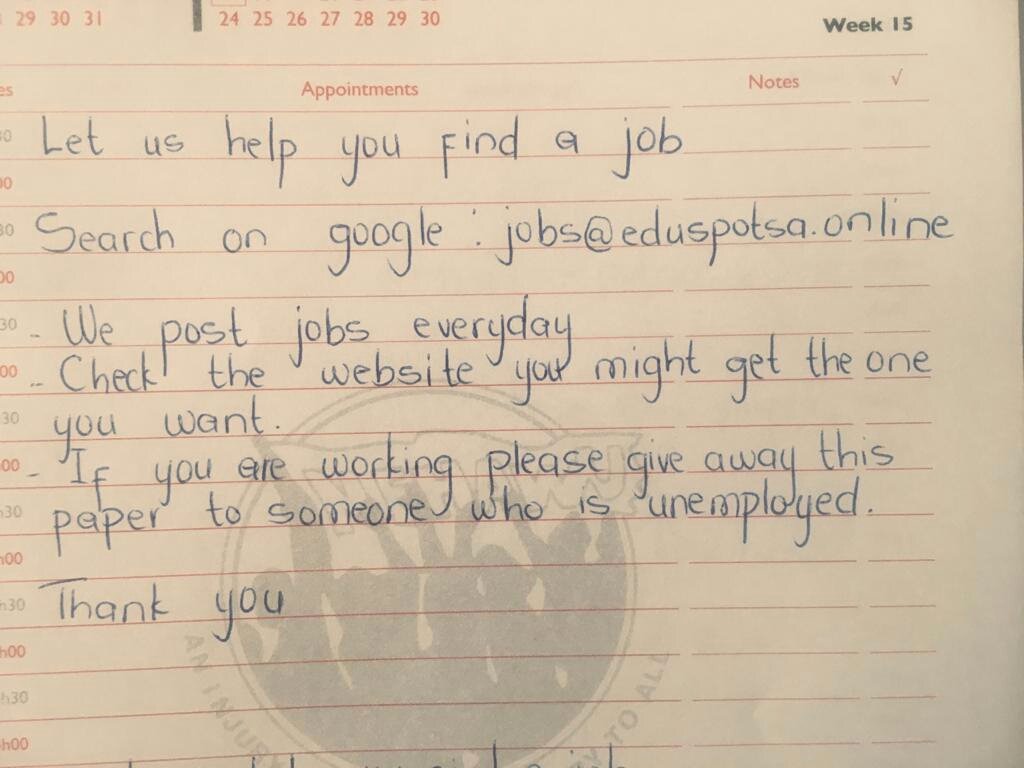 29 30 31
24 25 26 27 28 29 30
Week 15
Appointments
Notes
√
Let us help you find a job
Search on google : jobs@eduspotsa.online
- We post jobs everyday
- Check the website you might get the one
you want.
- If you are working please give away this
paper to someone who is unemployed.
Thank you
AN INJURY
TO ALL